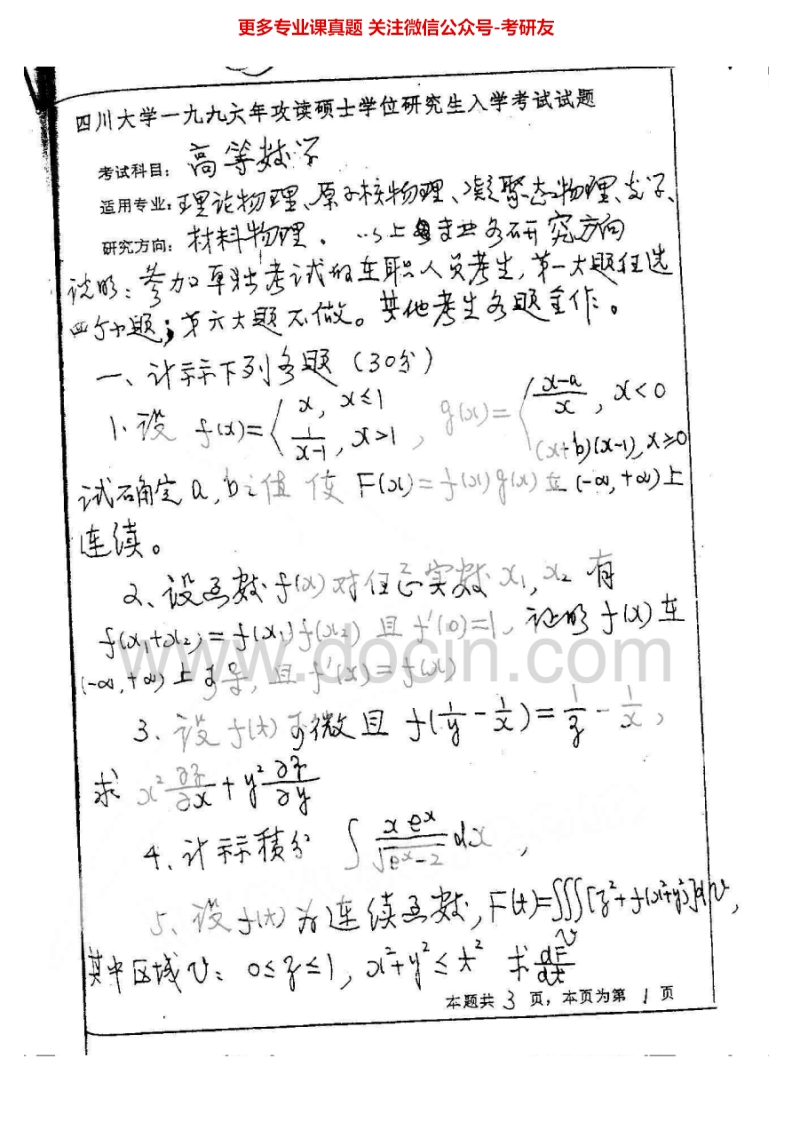 更多专业课真题 关注微信公众号-考研友
四川大学一九九六年攻读硕士学位研究生入学考试试题
考试科目：高等数学
适用专业：理论物理、原子核物理、凝聚态物理、光学、
研究方向：材料物理。以上专业各研究方向
说明：参加单独考试的在职人员考生，第一大题任选
四个小题；第六大题不做。其他考生各题全作。
一、计算下列各题（30分）
1. 设 f(x)={x, x≤1; 1/(x-1), x>1, g(x)={(x-a)/x, x<0; (x+b)(x-1), x≥0
试确定a, b之值 使 F(x)=f(x)g(x)在(-∞,+∞)上
连续。
2、设函数f(x)对任意实数x₁, x₂ 有
f(x₁+x₂)=f(x₁)f(x₂) 且 f'(0)=1, 证明f(x)在
(-∞,+∞)上可导, 且f'(x)=f(x)
www.docin.com
3. 设f(t)可微且 f(1/y - 1/x)=1/z - 1/x,
求 x² ∂z/∂x + y² ∂z/∂y
4、计算积分 ∫ xeˣ/√(eˣ-2) dx,
5、设f(t)为连续函数, F(t)=∭_v[z²+f(x²+y²)]dv,
其中区域v: 0≤z≤1, x²+y²≤t² 求 dF/dt
本题共 3 页，本页为第 1 页